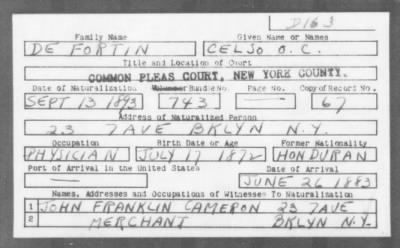 D163
Family Name Given Name or Names
DE FORTIN CELSO O.C.
Title and Location of Court
COMMON PLEAS COURT, NEW YORK COUNTY.
Date of Naturalization Volume or Bundle No. Page No. Copy of Record No.
SEPT 13 1893 743 — 67
Address of Naturalized Person
23 7AVE BKLYN N.Y.
Occupation Birth Date or Age Former Nationality
PHYSICIAN JULY 17 1872 HONDURAN
Port of Arrival in the United States Date of Arrival
— JUNE 26 1883
Names, Addresses and Occupations of Witnesses To Naturalization
1 JOHN FRANKLIN CAMERON 23 7AVE
2 MERCHANT BKLYN N.Y.